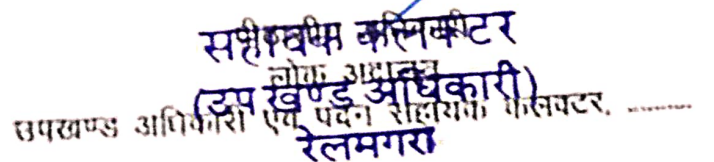 सहायक कलेक्टर
लोक अदालत
(उप खण्ड अधिकारी)
उपखण्ड अधिकारी एवं पदेन सहायक कलक्टर, ..........
रेलमगरा